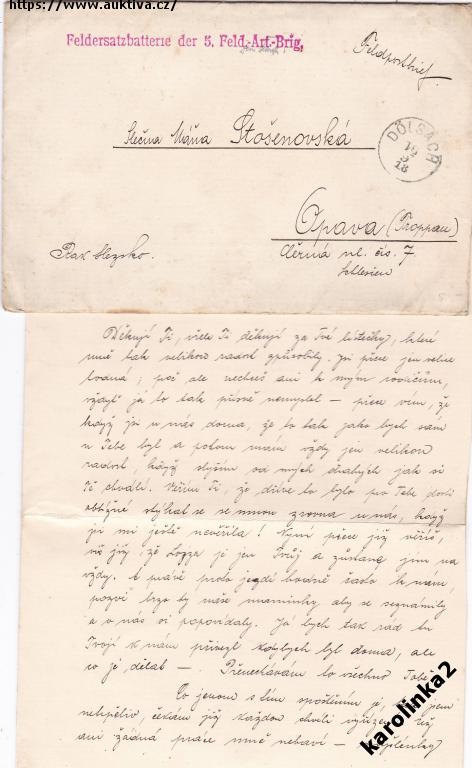 https://www.auktiva.cz/
Feldersatzbatterie der 5. Feld-Art-Brig.
Feldpostbrief.
Slečna Máňa Stošenovská
DÖLSACH
18
Opava (Troppau)
Černá ul. čís. 7
Schlesien
Rak. Slezsko.
Děkuji Ti, vřele Ti děkuji za Tvé lístečky, které
mně tak velikou radost způsobily. Jsi přece jen velice
hodná; proč ale nechceš ani k mým rodičům,
vždyť já to tak přísně nemyslel – přece vím, že
když jsi u nás doma, že to tak jako bych sám
u Tebe byl a potom mám vždy jen velikou
radost, když slyším od mých drahých jak si
Tě chválí. Věřím Ti, že dříve to bylo pro Tebe dosti
obtížné stýkat se se mnou zrovna u nás, když
jsi mi ještě nevěřila! Nyní přece již věříš,
víš již, že je jen Tvůj a zůstane jím na
vždy. A právě proto jezdi hodně často k nám,
pozvi brzo ty naše maminky, aby se seznámily
a o nás si popovídaly. Já bych tak rád tu
Tvojí k nám přivezl kdybych byl doma, ale
co je dělat –. Přenechávám to všechno Tobě.
Co jenom s tím je, jsem
netrpěliv, čekám již každou chvíli
ani žádná práce mně nebaví –
karolinka2